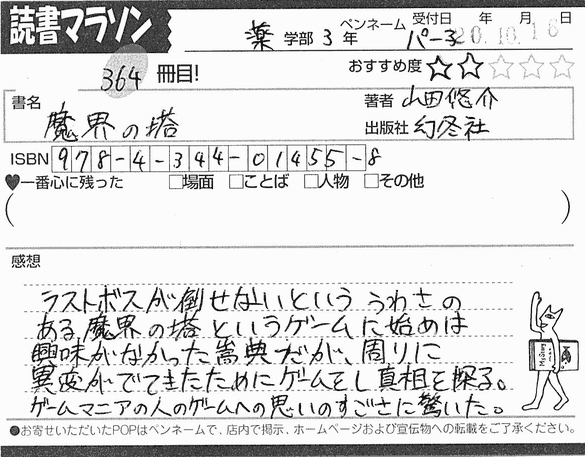 読書マラソン
薬 学部 3 年 ペンネーム 受付日 年 月 日
20.10.16
364 冊目! おすすめ度 ★★☆☆☆
書名 魔界の塔
著者 山田悠介
出版社 幻冬社
ISBN 978-4-344-01455-8
♥一番心に残った □場面 □ことば □人物 □その他
( )
感想
ラストボスが倒せないという うわさの
ある魔界の塔というゲームに始めは
興味がなかった嵩典だが、周りに
異変がでてきたためにゲームをし真相を探る。
ゲームマニアの人のゲームへの思いのすごさに驚いた。
●お寄せいただいたPOPはペンネームで、店内で掲示、ホームページおよび宣伝物への転載をご了承ください。